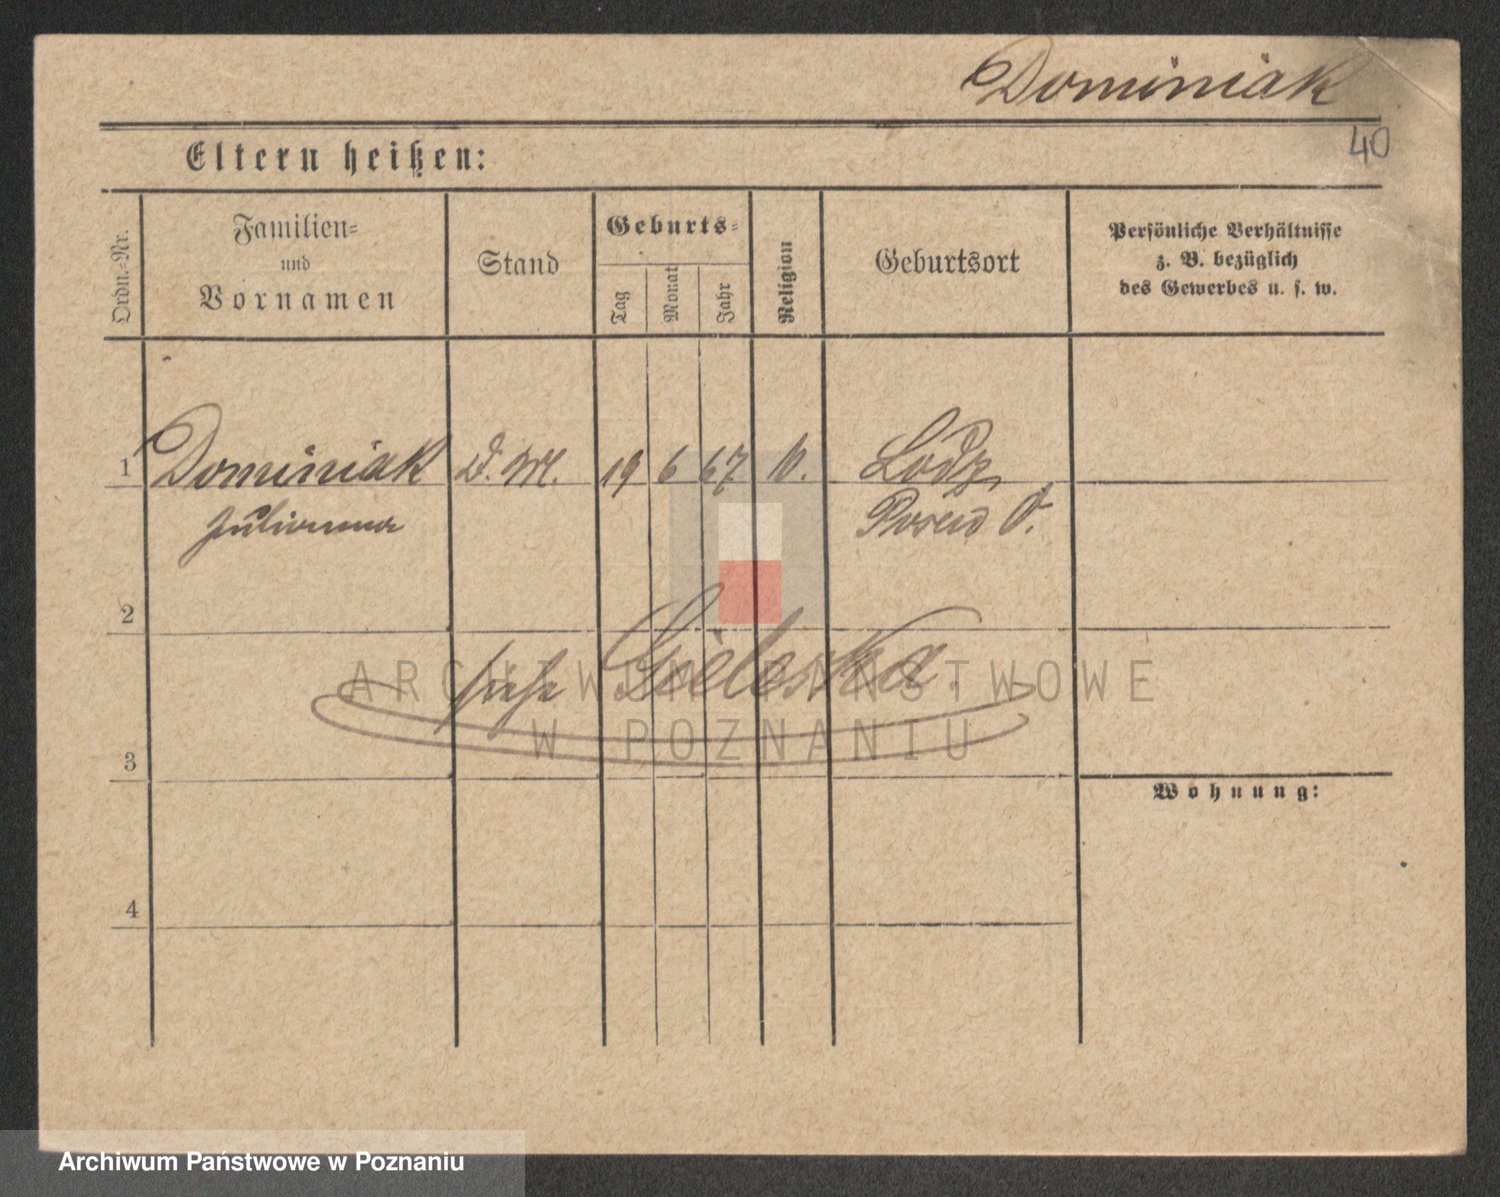 Dominiak
40
Eltern heißen:
Ordn.-Nr.
Familien-
und
Vornamen
Stand
Geburts-
Tag
Monat
Jahr
Religion
Geburtsort
Persönliche Verhältnisse
z. B. bezüglich
des Gewerbes u. s. w.
1 Dominiak D. M. 19 6 67 k. Lodz,
Julianna Posen O.
2
siehe Gieleska.
3
Wohnung:
4
ARCHIWUM PAŃSTWOWE
W POZNANIU
Archiwum Państwowe w Poznaniu